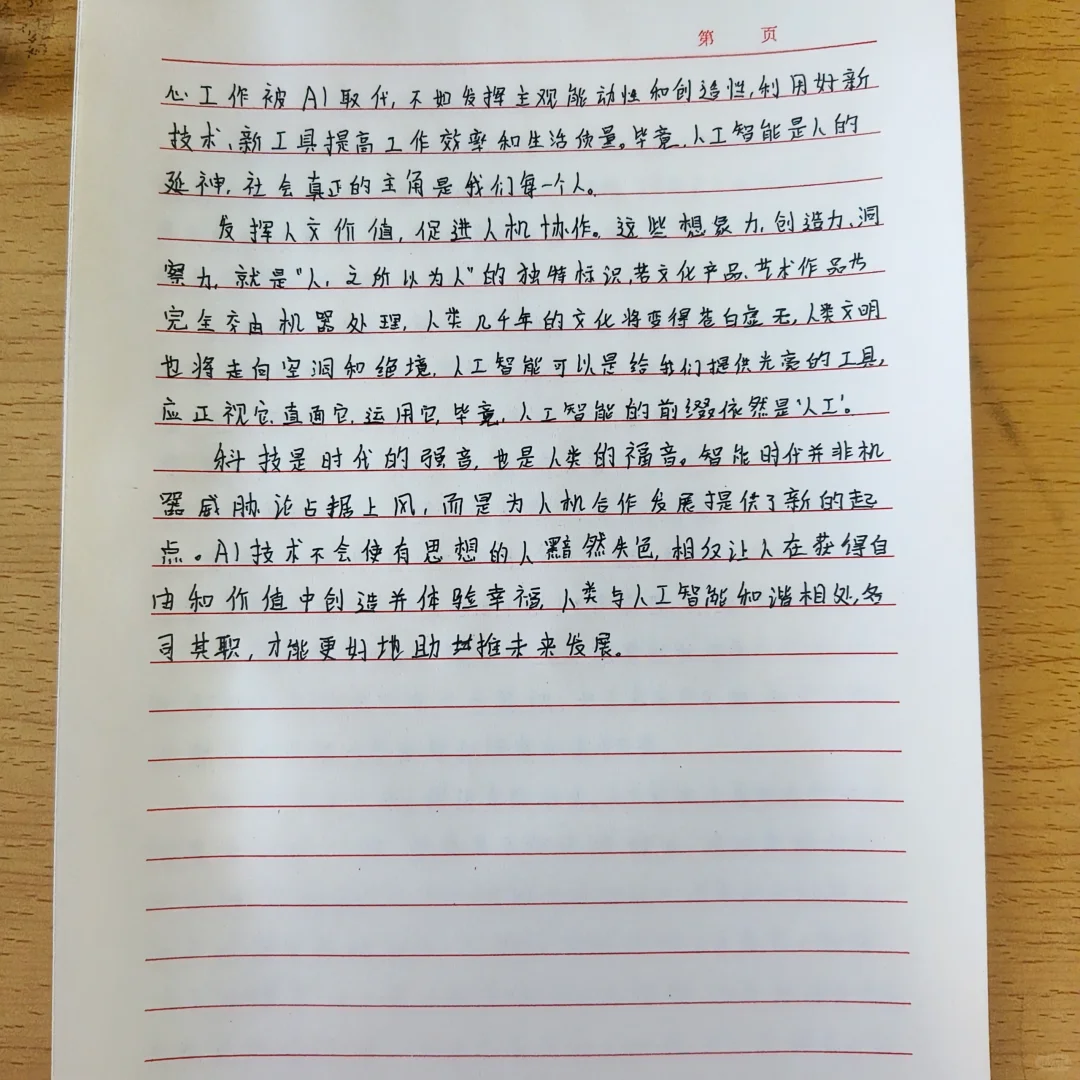 第 页
心工作被AI取代,不如发挥主观能动性和创造性,利用好新
技术、新工具提高工作效率和生活质量。毕竟,人工智能是人的
延神,社会真正的主角是我们每一个人。
发挥人文价值,促进人机协作。这些想象力,创造力、洞
察力,就是"人,之所以为人"的独特标识,若文化产品、艺术作品
完全交由机器处理,人类几千年的文化将变得苍白虚无,人类文明
也将走向空洞和绝境,人工智能可以是给我们提供光亮的工具,
应正视它,直面它,运用它,毕竟,人工智能的前缀依然是'人工'。
科技是时代的强音,也是人类的福音。智能时代并非机
器威胁论占据上风,而是为人机合作发展提供了新的起
点。AI技术不会使有思想的人黯然失色,相反让人在获得自
由和价值中创造并体验幸福,人类与人工智能和谐相处,各
司其职,才能更好地助推未来发展。